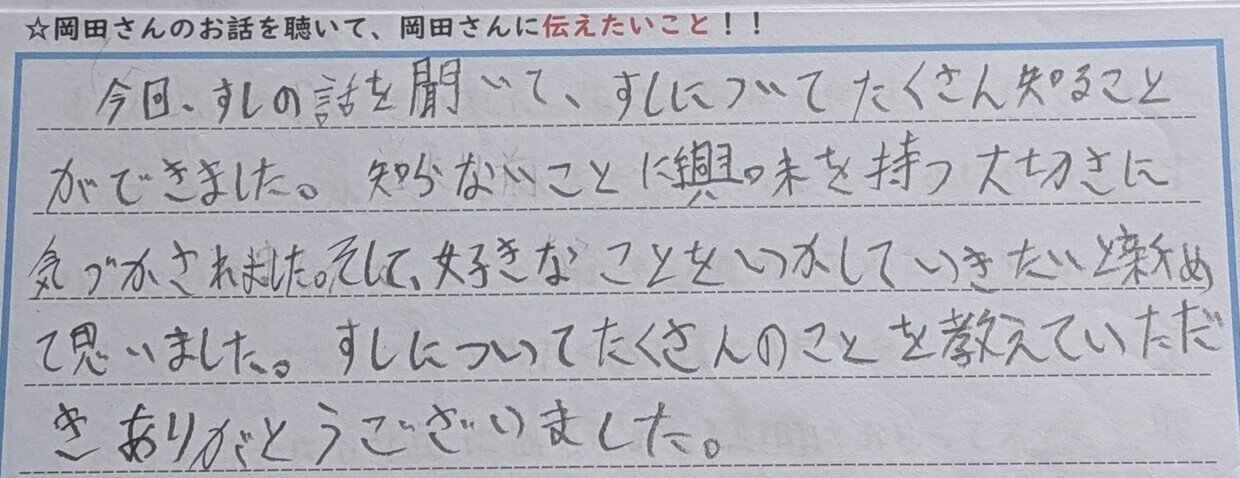 ☆岡田さんのお話を聴いて、岡田さんに伝えたいこと！！
今回、すしの話を聞いて、すしについてたくさん知ること
ができました。知らないことに興味を持つ大切さに
気づかされました。そして、好きなことをいかしていきたいと新め
て思いました。すしについてたくさんのことを教えていただ
きありがとうございました。